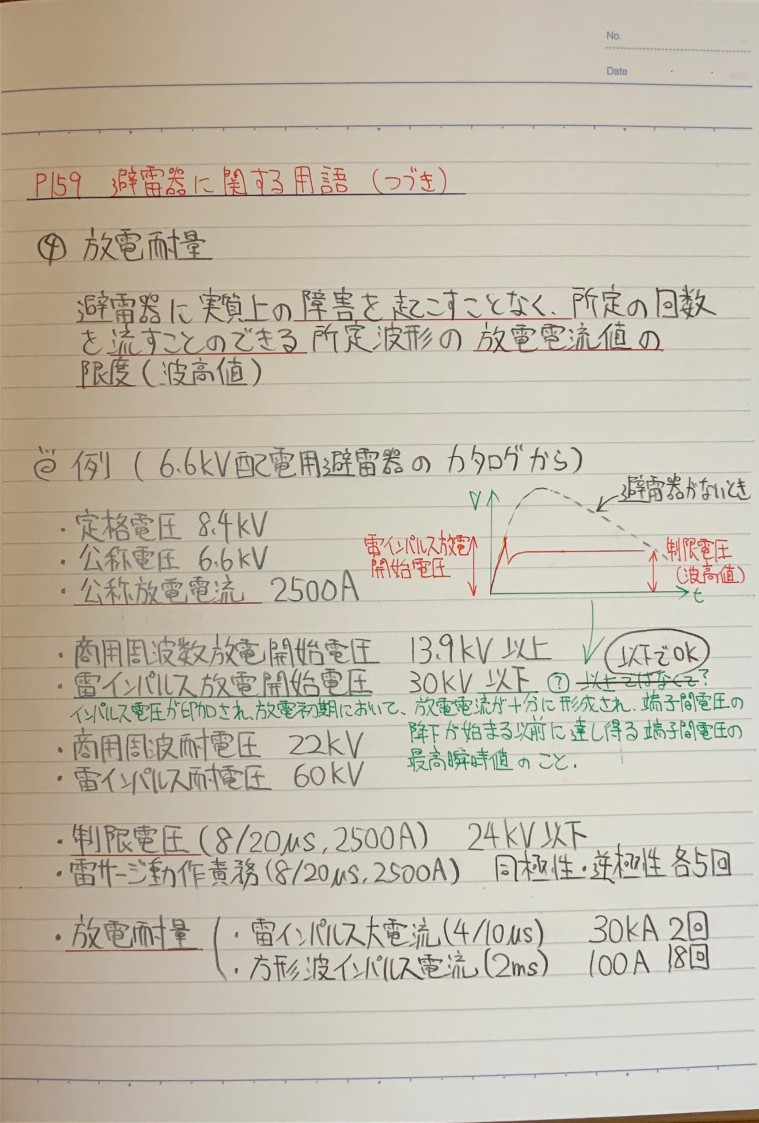 No.
Date
P159 避雷器に関する用語 (つづき)
④ 放電耐量
避雷器に実質上の障害を起こすことなく、所定の回数
を流すことのできる所定波形の放電電流値の
限度(波高値)
例 (6.6kV配電用避雷器のカタログから)
V
避雷器がないとき
・定格電圧 8.4kV
雷インパルス放電
開始電圧
制限電圧
(波高値)
・公称電圧 6.6kV
・公称放電電流 2500A
t
・商用周波数放電開始電圧 13.9kV 以上
以下でOK
・雷インパルス放電開始電圧 30kV 以下 ? 以上ではなくて?
インパルス電圧が印加され、放電初期において、放電電流が十分に形成され、端子間電圧の
降下が始まる以前に達し得る端子間電圧の
最高瞬時値のこと.
・商用周波耐電圧 22kV
・雷インパルス耐電圧 60kV
・制限電圧(8/20μs, 2500A) 24kV以下
・雷サージ動作責務(8/20μs, 2500A) 同極性・逆極性 各5回
・放電耐量 ( ・雷インパルス大電流(4/10μs) 30kA 2回
・方形波インパルス電流(2ms) 100A 18回